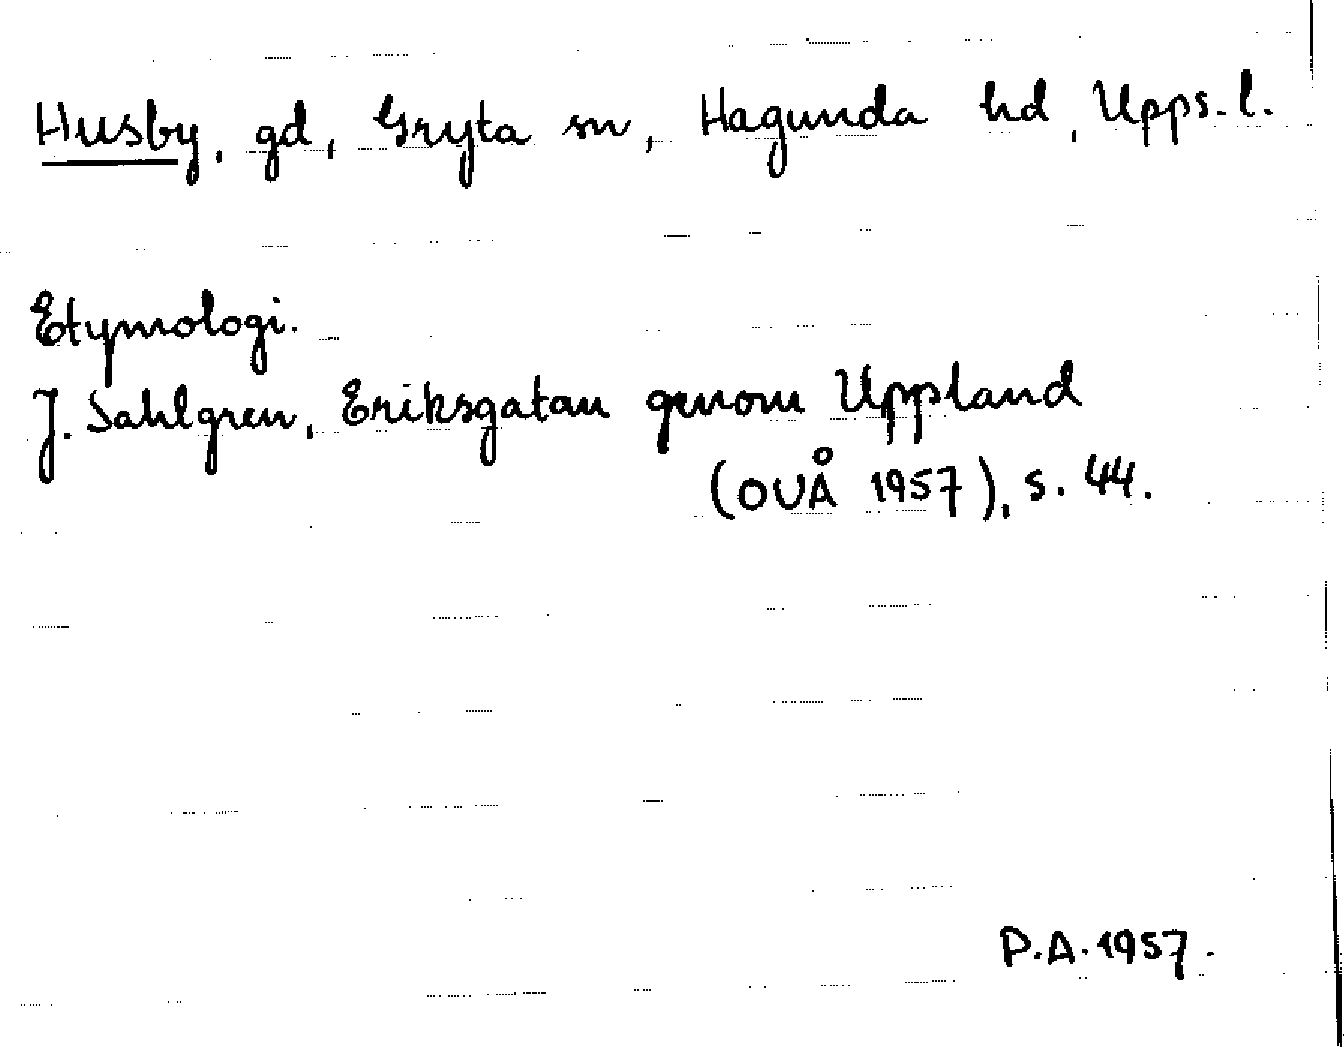 Husby, gd, Gryta sn, Hagunda hd, Upps. l.
Etymologi.
J. Sahlgren, Eriksgatan genom Uppland
(OUÅ 1957), s. 44.
P.A. 1957.